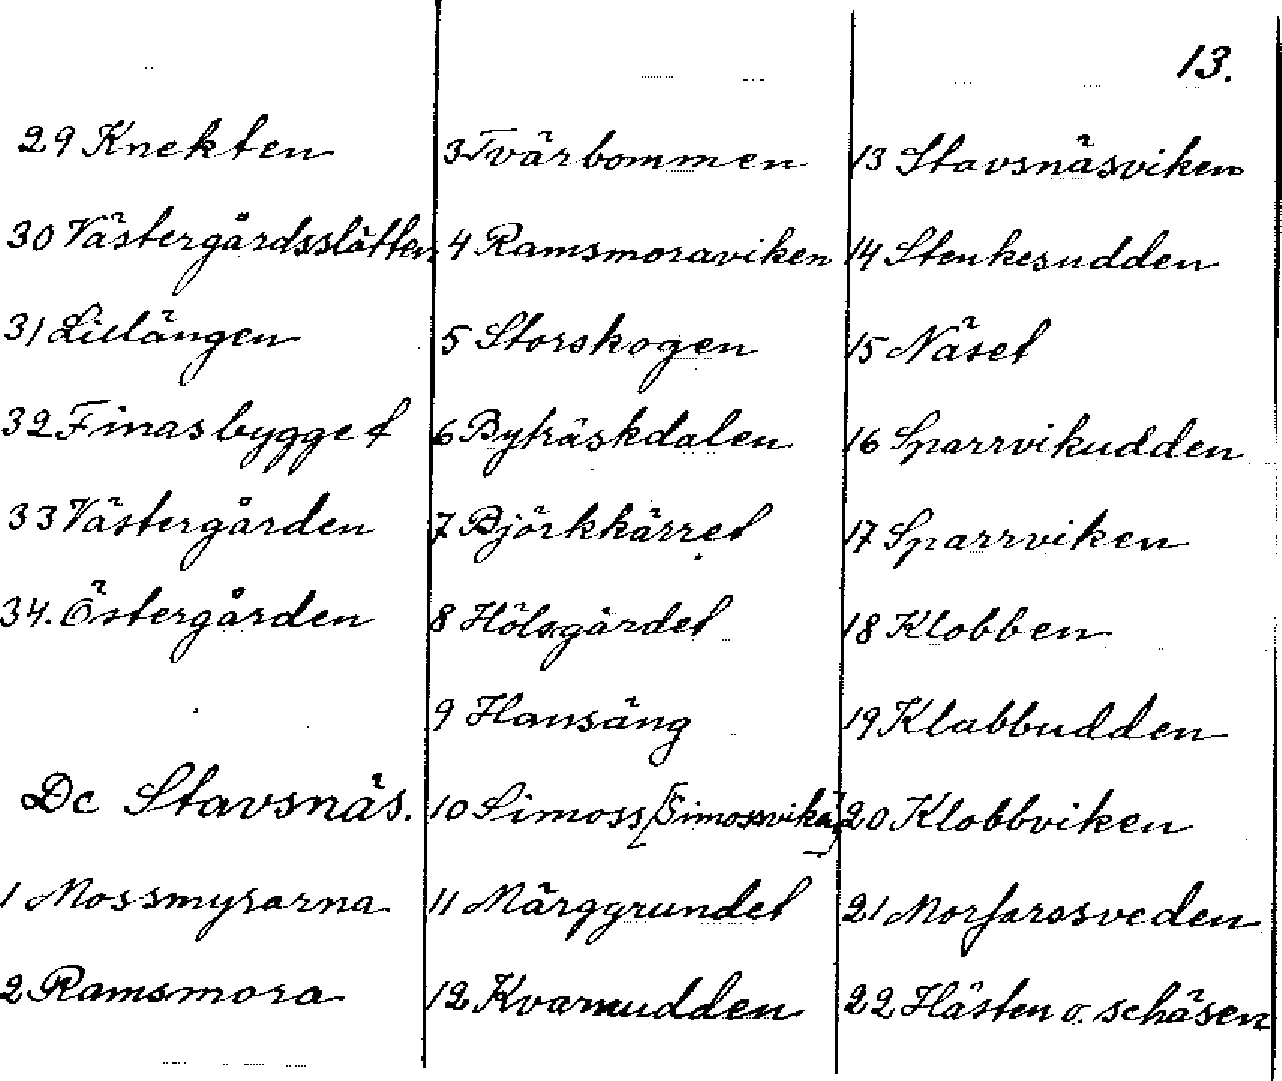 13.
29 Knekten
30 Västergårdsslätten
31 Lillängen
32 Finasbygget
33 Västergården
34. Östergården
Dc Stavsnäs.
1 Mossmyrarna
2 Ramsmora
3 Tvärbommen
4 Ramsmoraviken
5 Storskogen
6 Byträskdalen
7 Björkkärret
8 Hölsgärdet
9 Hansäng
10 Simoss (Simossvika)
11 Märggrundet
12 Kvarnudden
13 Stavsnäsviken
14 Stenkesudden
15 Näset
16 Sparrvikudden
17 Sparrviken
18 Klobben
19 Klabbudden
20 Klobbviken
21 Morfarssveden
22 Hästen o. schäsen